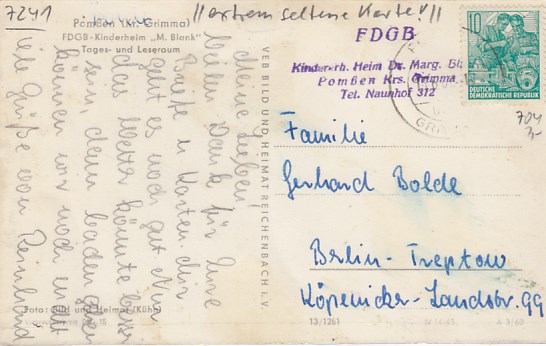 7241
//extrem seltene Karte!//
Pomßen (Kr. Grimma)
FDGB-Kinderheim „M. Blank"
Tages- und Leseraum
FDGB
Kindererh. Heim Dr. Marg. Bl
Pomßen Krs. Grimma
Tel. Naunhof 312
10
DEUTSCHE
DEMOKRATISCHE REPUBLIK
704
3,-
Meine Lieben!
Vielen Dank für Eure
Briefe u. Karten. Mir
geht es noch gut. Nur
das Wetter könnte besser
sein, denn baden gehen
können wir noch nicht
Viele Grüße von Reinhard
VEB BILD UND HEIMAT REICHENBACH i. V.
Familie
Gerhard Bolde
Berlin-Treptow
Köpenicker-Landstr. 99
Foto: Bild und Heimat (Kühn)
13/1261
A 3/60